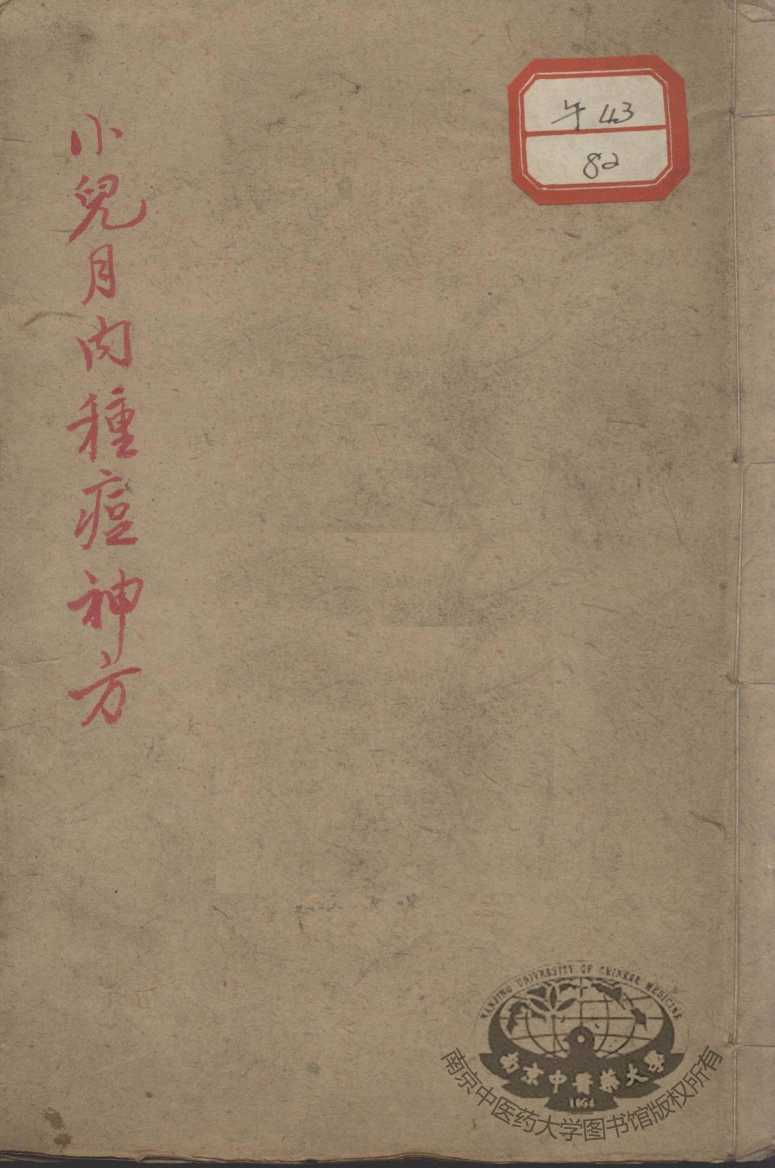 小兒月内種痘神方
午 43
82
NANJING UNIVERSITY OF CHINESE MEDICINE
南京中醫藥大學
1954
南京中医药大学图书馆版权所有